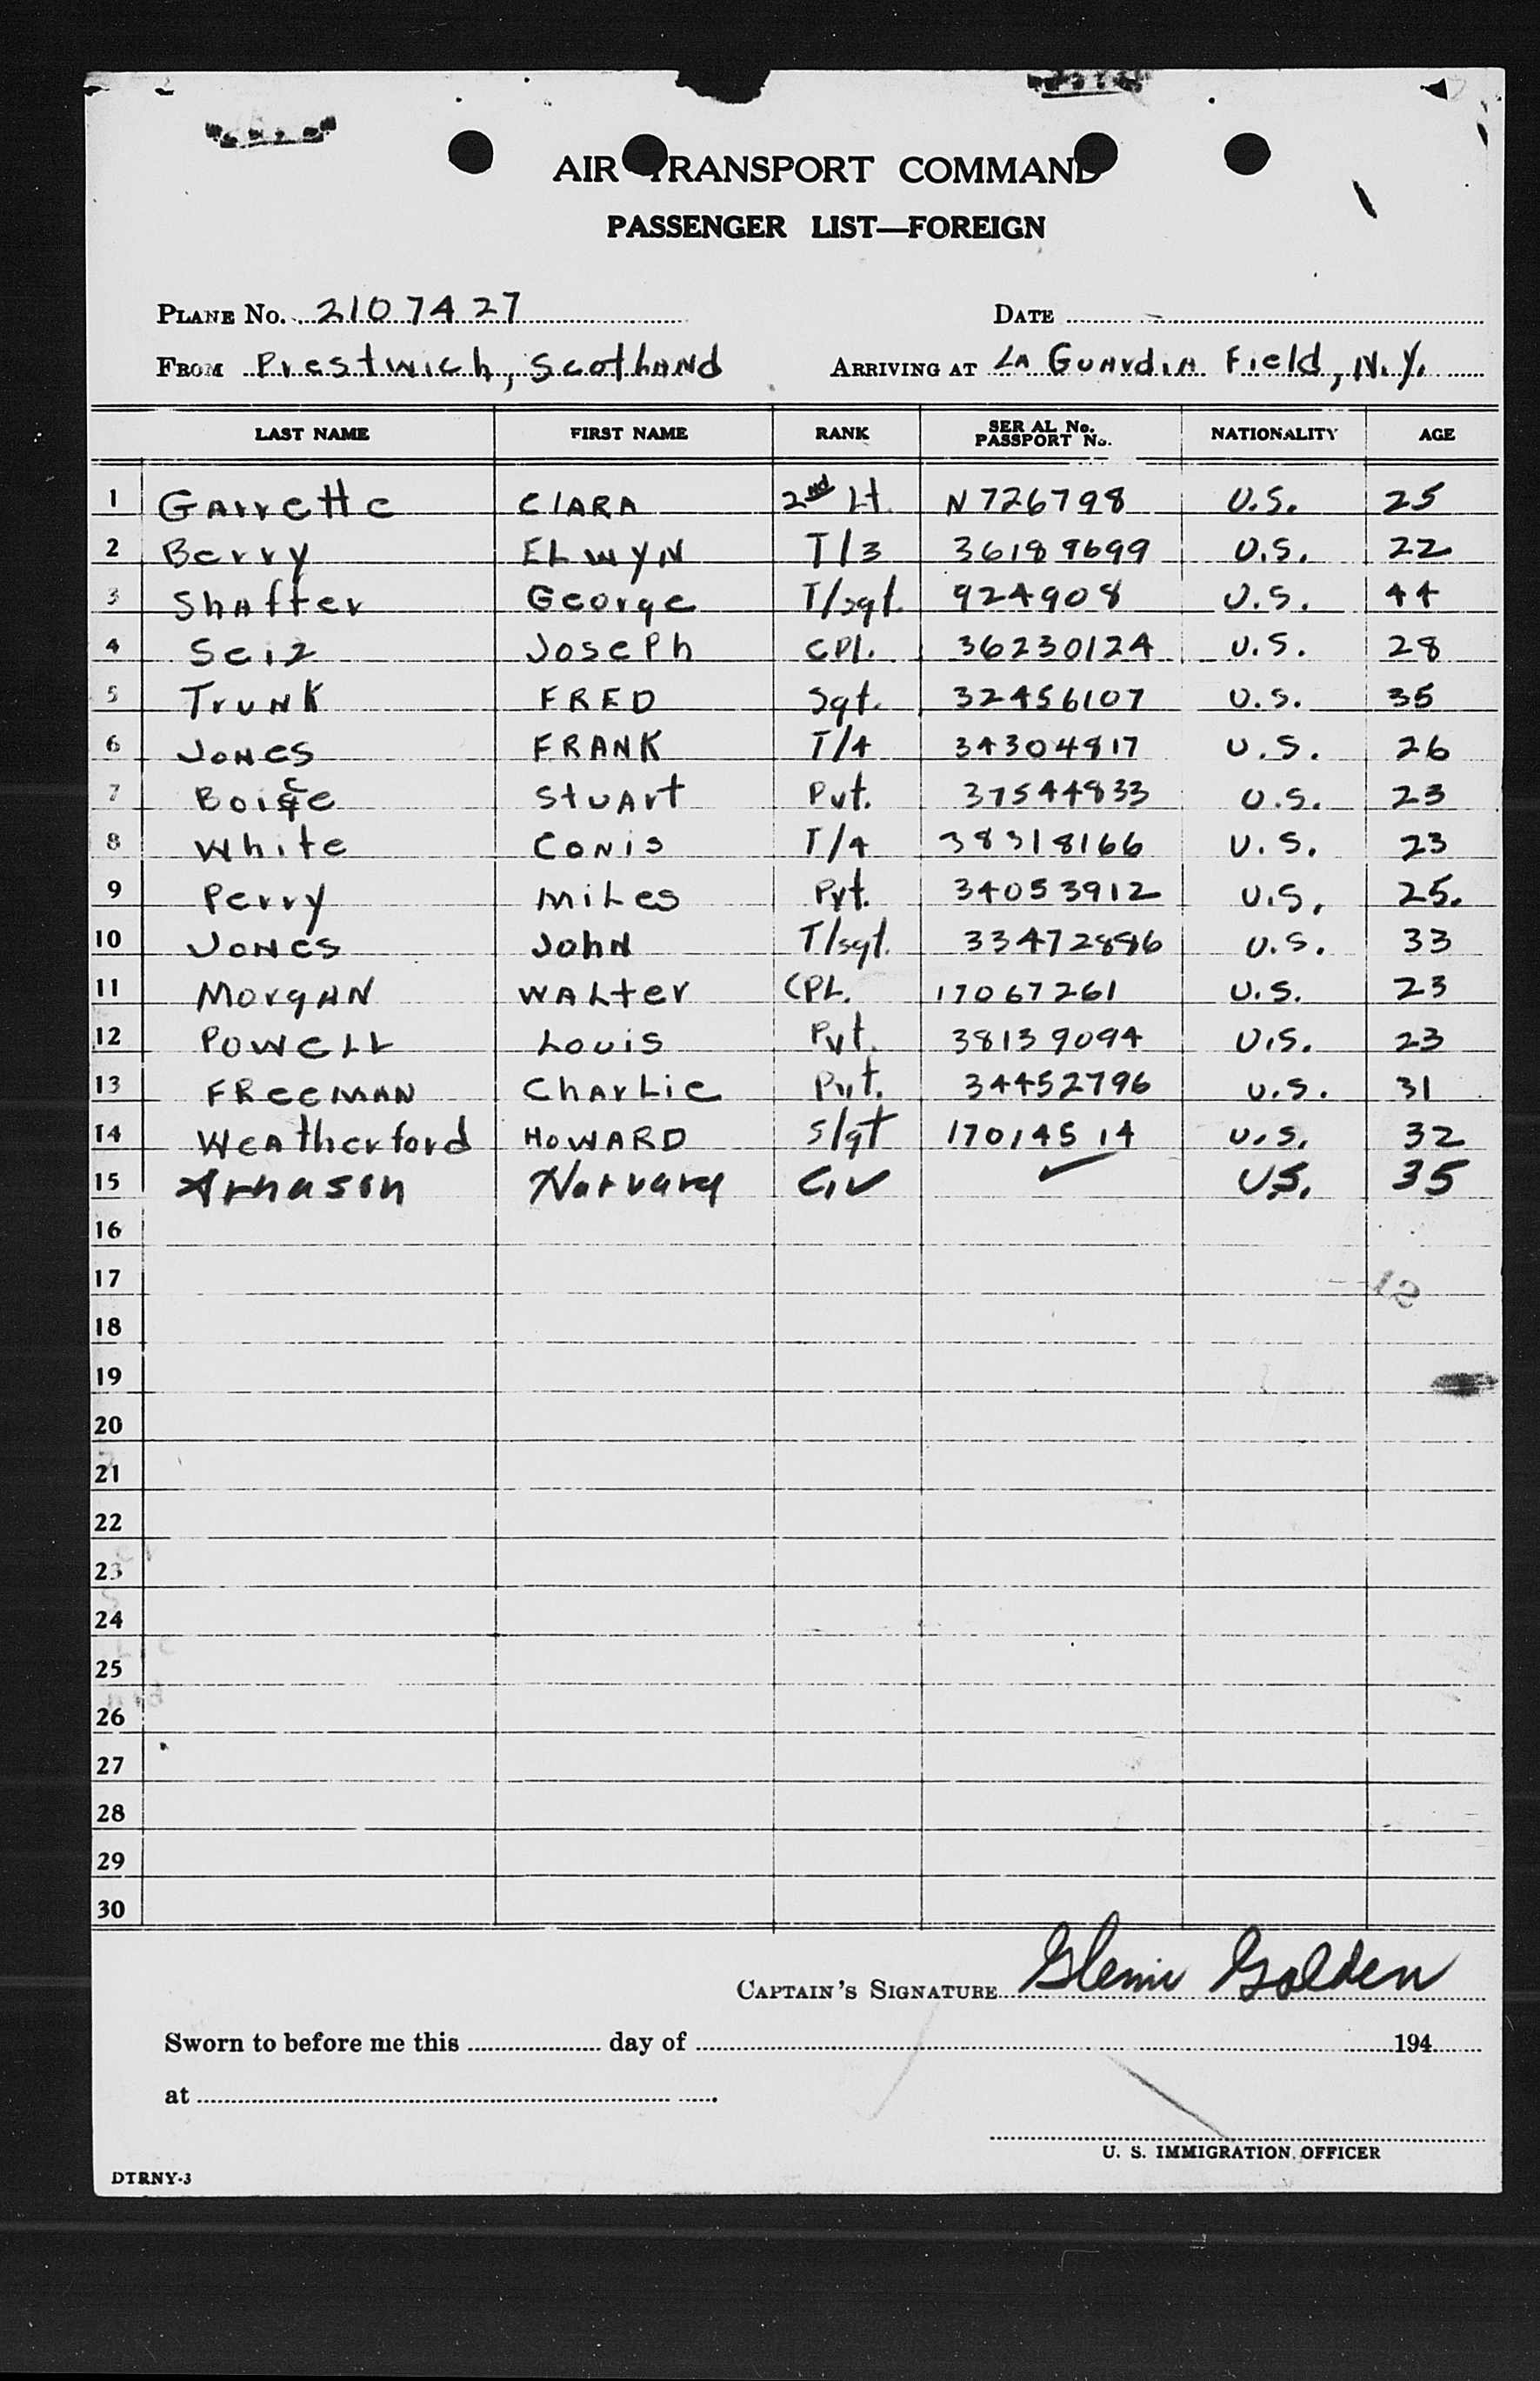 AIR TRANSPORT COMMAND
PASSENGER LIST—FOREIGN
PLANE No. 2107427 DATE
FROM Prestwich, Scotland ARRIVING AT La Guardia Field, N.Y.
LAST NAME FIRST NAME RANK SERIAL No. PASSPORT No. NATIONALITY AGE
1 Garrette Clara 2nd Lt N726798 U.S. 25
2 Berry Elwyn T/3 36189699 U.S. 22
3 Shaffer George T/sgt. 924908 U.S. 44
4 Seiz Joseph Cpl. 36230124 U.S. 28
5 Trunk Fred Sgt. 32456107 U.S. 35
6 Jones Frank T/4 34304817 U.S. 26
7 Boice Stuart Pvt. 37544833 U.S. 23
8 White Conis T/4 38318166 U.S. 23
9 Perry Miles Pvt. 34053912 U.S. 25.
10 Jones John T/sgt. 33472886 U.S. 33
11 Morgan Walter CPL. 17067261 U.S. 23
12 Powell Louis Pvt. 38139094 U.S. 23
13 Freeman Charlie Pvt. 34452796 U.S. 31
14 Weatherford Howard S/gt 17014514 U.S. 32
15 Arnason Civ ✓ U.S. 35
16
17
18
19
20
21
22
23
24
25
26
27
28
29
30
CAPTAIN'S SIGNATURE Golden
Sworn to before me this day of 194
at
U. S. IMMIGRATION OFFICER
DTRNY-3